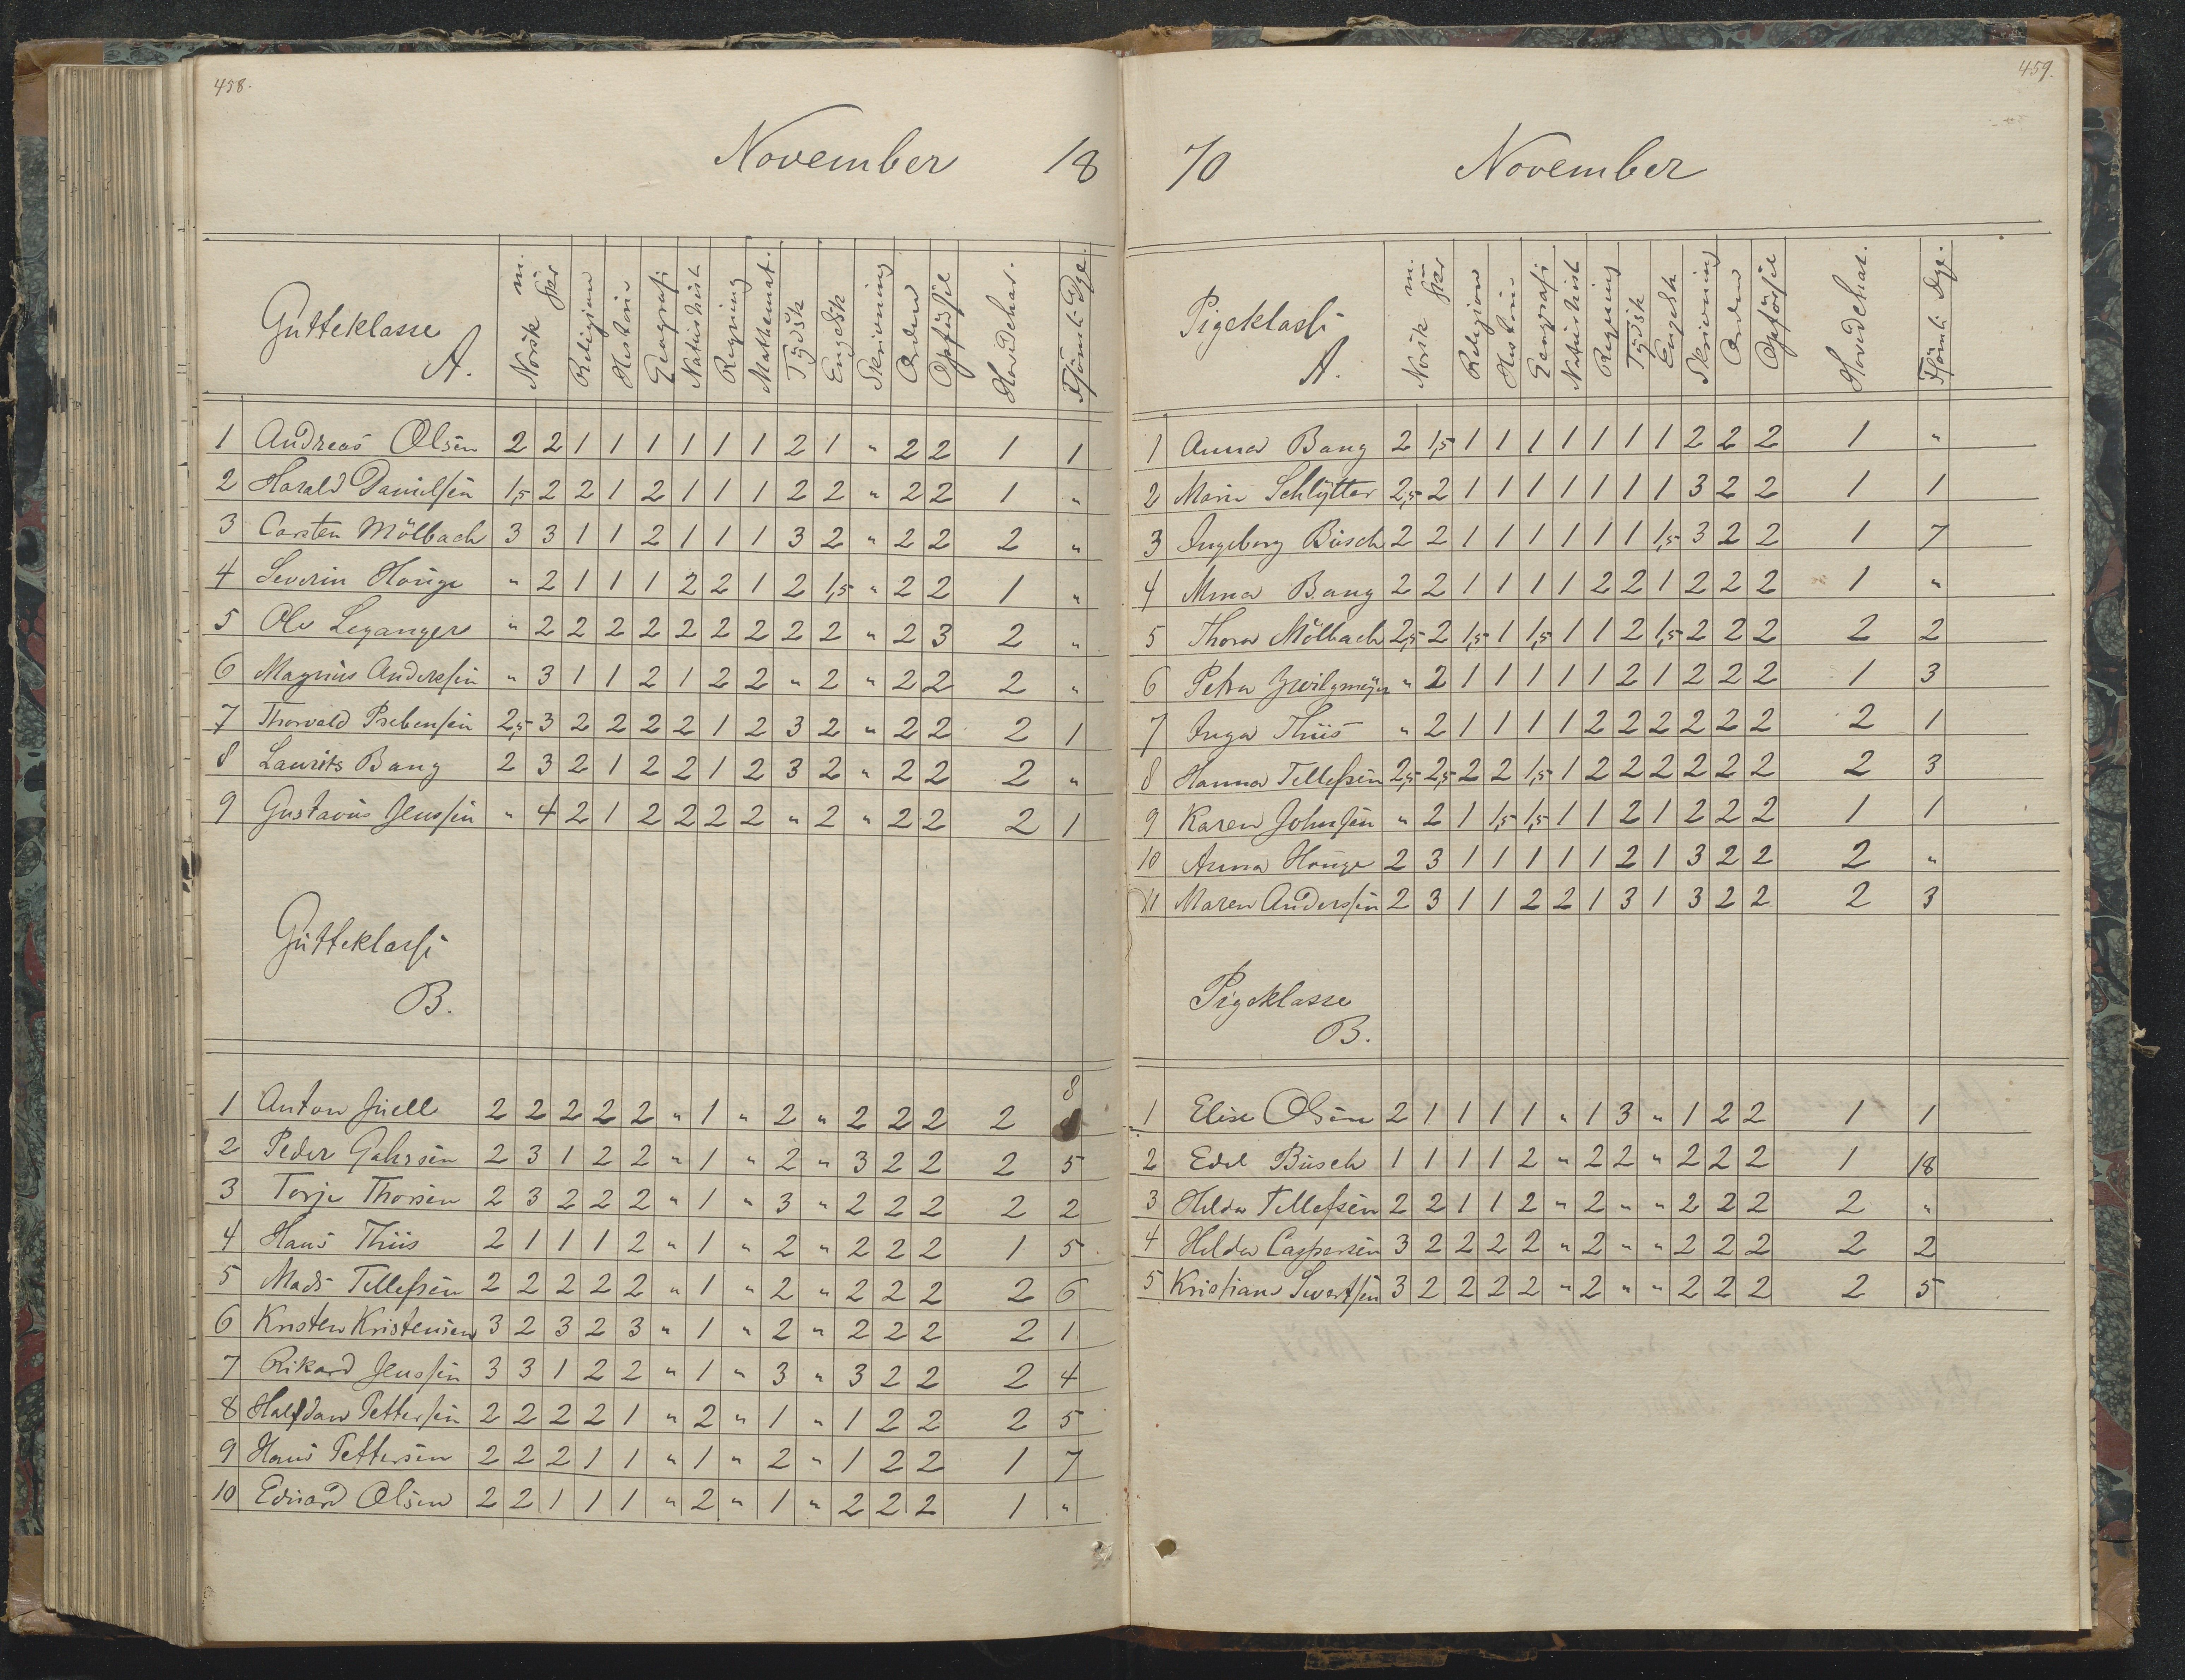 458.
November 18
Gutteklasse A. Norsk m. skr. Religion Historie Geografi Naturhist. Regning Mathemat. Tydsk Engelsk Skrivning Orden Opførsel Hovedchar. Forsömte Dge.
1 Andreas Olsen 2 2 1 1 1 1 1 1 2 1 " 2 2 1 1
2 Harald Danielsen 1,5 2 2 1 2 1 1 1 2 2 " 2 2 1 "
3 Carsten Mölbach 3 3 1 1 2 1 1 1 3 2 " 2 2 2 "
4 Severin Houge " 2 1 1 1 2 2 1 2 1,5 " 2 2 1 "
5 Ole Leganger " 2 2 2 2 2 2 2 2 2 " 2 3 2 "
6 Magnus Anderssen " 3 1 1 2 1 2 2 " 2 " 2 2 2 "
7 Thorvald Prebensen 2,5 3 2 2 2 2 1 2 3 2 " 2 2 2 1
8 Laurits Bang 2 3 2 1 2 2 1 2 3 2 " 2 2 2 "
9 Gustavus Jenssen " 4 2 1 2 2 2 2 " 2 " 2 2 2 1
Gutteklasse
B.
1 Anton Juell 2 2 2 2 2 " 1 " 2 " 2 2 2 2 8
2 Peder Gahrsen 2 3 1 2 2 " 1 " 2 " 3 2 2 2 5
3 Torje Thorsen 2 3 2 2 2 " 1 " 3 " 2 2 2 2 2
4 Hans Thiis 2 1 1 1 2 " 1 " 2 " 2 2 2 1 5
5 Mads Tellefsen 2 2 2 2 2 " 1 " 2 " 2 2 2 2 6
6 Kristen Kristensen 3 2 3 2 3 " 1 " 2 " 2 2 2 2 1
7 Rikard Jenssen 3 3 1 2 2 " 1 " 3 " 3 2 2 2 4
8 Halfdan Pettersen 2 2 2 2 1 " 2 " 1 " 1 2 2 2 5
9 Hans Pettersen 2 2 2 1 1 " 1 " 2 " 1 2 2 1 7
10 Eduard Olsen 2 2 1 1 1 " 2 " 1 " 2 2 2 1 "
459.
70 November
Pigeklasse A. Norsk m. skr. Religion Historie Geografi Naturhist Regning Tydsk Engelsk Skrivning Orden Opförsel Hovedchar. Forsömte Dge.
1 Anna Bang 2 1,5 1 1 1 1 1 1 1 2 2 2 1 "
2 Marie Schlytter 2,5 2 1 1 1 1 1 1 1 3 2 2 1 1
3 Ingeborg Busch 2 2 1 1 1 1 1 1 1,5 3 2 2 1 7
4 Mina Bang 2 2 1 1 1 1 2 2 1 2 2 2 1 "
5 Thora Mölbach 2,5 2 1,5 1 1,5 1 1 2 1,5 2 2 2 2 2
6 Petra Zwilgmeyer " 2 1 1 1 1 1 2 1 2 2 2 1 3
7 Inga Thiis " 2 1 1 1 1 2 2 2 2 2 2 2 1
8 Hanna Tellefsen 2,5 2,5 2 2 1,5 1 2 2 2 2 2 2 2 3
9 Karen Johnsen " 2 1 1,5 1,5 1 1 2 1 2 2 2 1 1
10 Anna Houge 2 3 1 1 1 1 1 2 1 3 2 2 2 "
11 Maren Anderssen 2 3 1 1 2 2 1 3 1 3 2 2 2 3
Pigeklasse
B.
1 Elise Olsen 2 1 1 1 1 " 1 3 " 1 2 2 1 1
2 Edel Busch 1 1 1 1 2 " 2 2 " 2 2 2 1 18
3 Hilda Tellefsen 2 2 1 1 2 " 2 " " 2 2 2 2 "
4 Hilda Caspersen 3 2 2 2 2 " 2 " " 2 2 2 2 2
5 Kristiane Sivertsen 3 2 2 2 2 " 2 " " 2 2 2 2 5